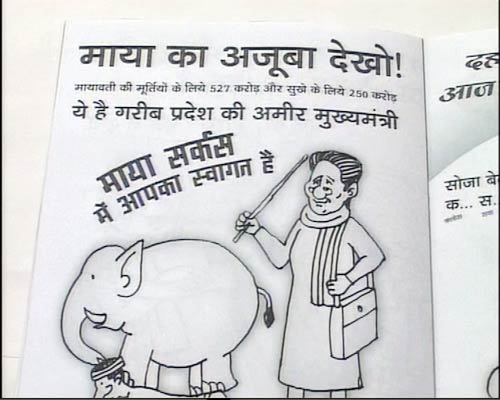 माया का अजूबा देखो!
मायावती की मूर्तियों के लिये 527 करोड़ और सुखे के लिये 250 करोड़
ये है गरीब प्रदेश की अमीर मुख्यमंत्री
माया सर्कस
में आपका स्वागत है
दह
आज
सोजा बे
क... स.